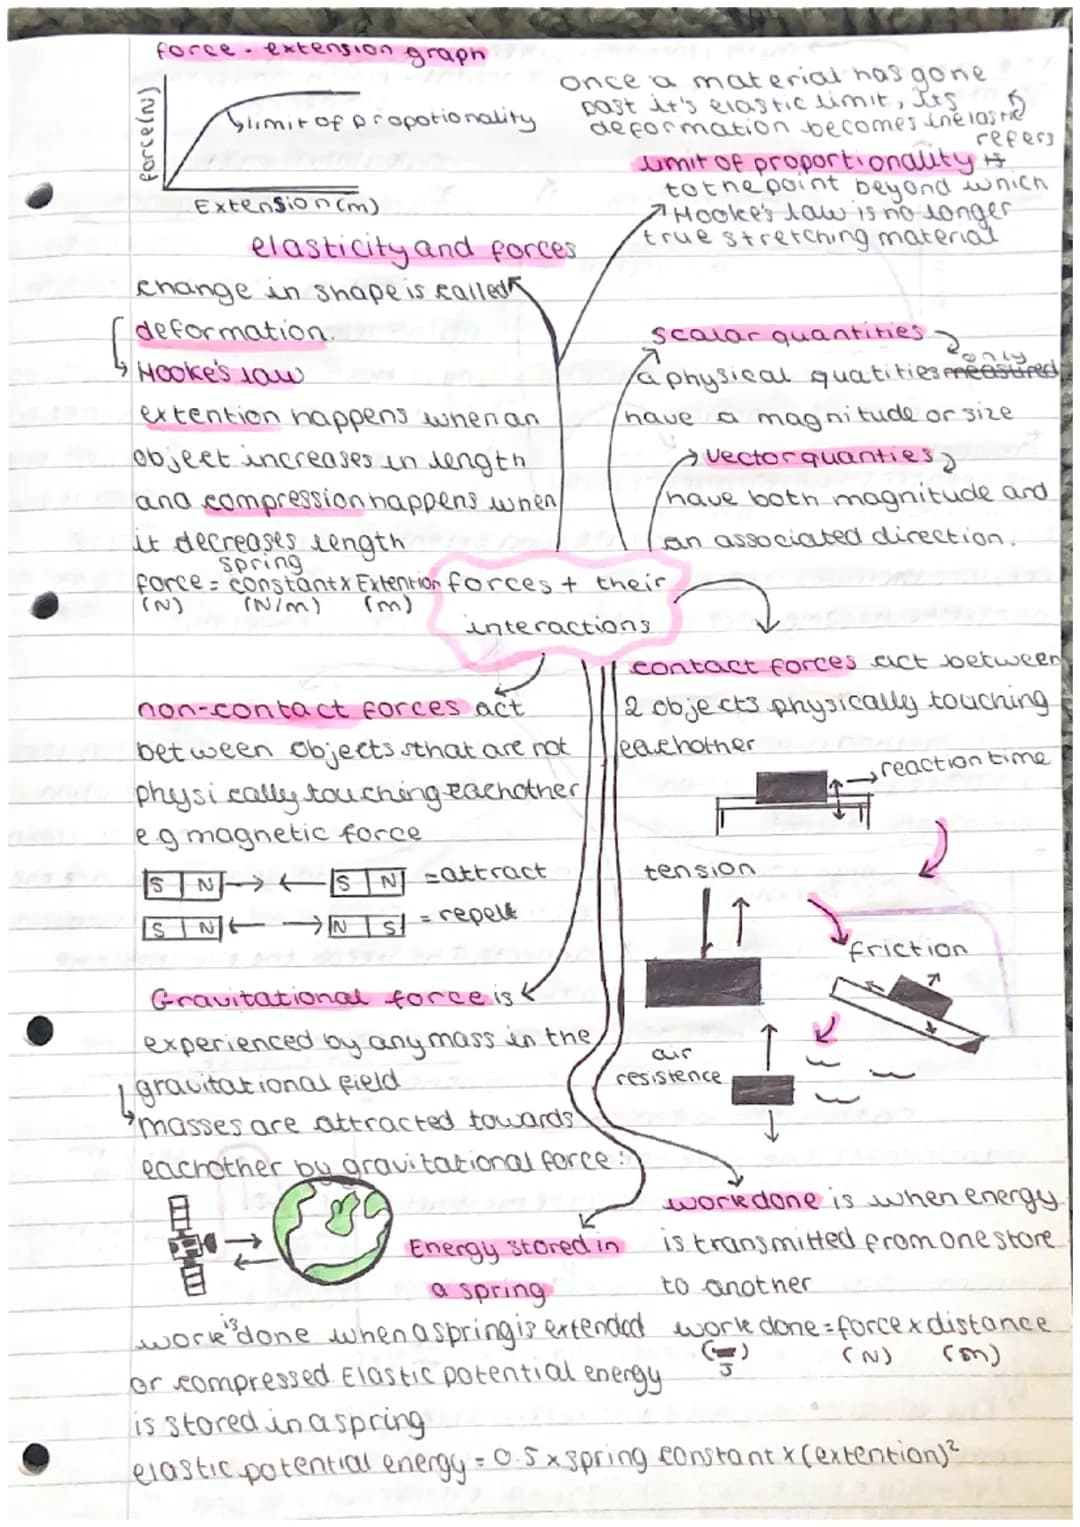 force - extension graph
force(N)
limit of propotionality
Extension(m)
once a material has gone
past it's elastic limit, its
deformation becomes inelastic
limit of proportionality refers
to the point beyond which
Hooke's law is no longer
true stretching material
elasticity and forces
change in shape is called
deformation.
Hooke's law
extention happens when an
object increases in length
and compression happens when
it decreases length
force = spring constant x Extention
(N) (N/m) (m)
scalar quantities
a physical quatities measured only
have a magnitude or size
vector quanties
have both magnitude and
an associated direction.
forces + their
interactions
contact forces act between
2 objects physically touching
eachother
reaction time
tension
friction
air
resistence
non-contact forces act
between objects that are not
physically touching eachother
e.g magnetic force
S N S N = attract
S N N S = repel
Gravitational force is
experienced by any mass in the
gravitational field
masses are attracted towards
eachother by gravitational force:
Energy stored in
a spring
work is done when a spring is extended
or compressed. Elastic potential energy
is stored in a spring
elastic potential energy = 0.5 x spring constant x (extention)²
work done is when energy
is transmitted from one store
to another
work done = force x distance
(J) (N) (m)